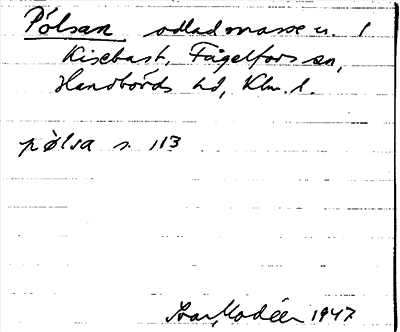 Pölsan odlad mosse u. 1
Kisebast, Fågelfors sn,
Handbörds hd, Klm. l.
pölsa s. 113
Ivar Modéer 1947